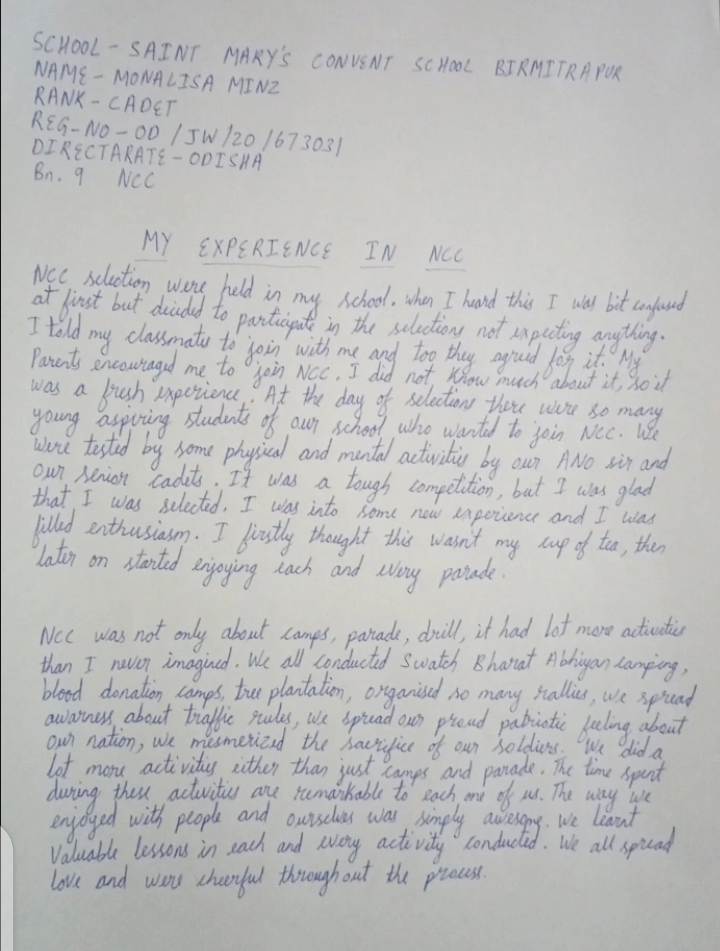 SCHOOL - SAINT MARY'S CONVENT SCHOOL BIRMITRAPUR
NAME - MONALISA MINZ
RANK - CADET
REG-NO - OD / JW / 20 / 673031
DIRECTARATE - ODISHA
Bn. 9 NCC
MY EXPERIENCE IN NCC
NCC selection were held in my school. When I heard this I was bit confused
at first but decided to participate in the selections not expecting anything.
I told my classmates to join with me and too they agreed for it. My
Parents encouraged me to join NCC. I did not know much about it, so it
was a fresh experience. At the day of selections there were so many
young aspiring students of our school who wanted to join NCC. We
were tested by some physical and mental activities by our ANO sir and
our senior cadets. It was a tough competition, but I was glad
that I was selected. I was into some new experience and I was
filled enthusiasm. I firstly thought this wasn't my cup of tea, then
later on started enjoying each and every parade.
NCC was not only about camps, parade, drill, it had lot more activities
than I never imagined. We all conducted Swatch Bharat Abhiyan camping,
blood donation camps, tree plantation, organised so many rallies, we spread
awarness about traffic rules, we spread our proud patriotic feeling about
our nation, we mesmerized the sacrifice of our soldiers. We did a
lot more activities either than just camps and parade. The time spent
during these activities are remarkable to each one of us. The way we
enjoyed with people and ourselves was simply awesome. We learnt
Valuable lessons in each and every activity conducted. We all spread
love and were cheerful throughout the process.